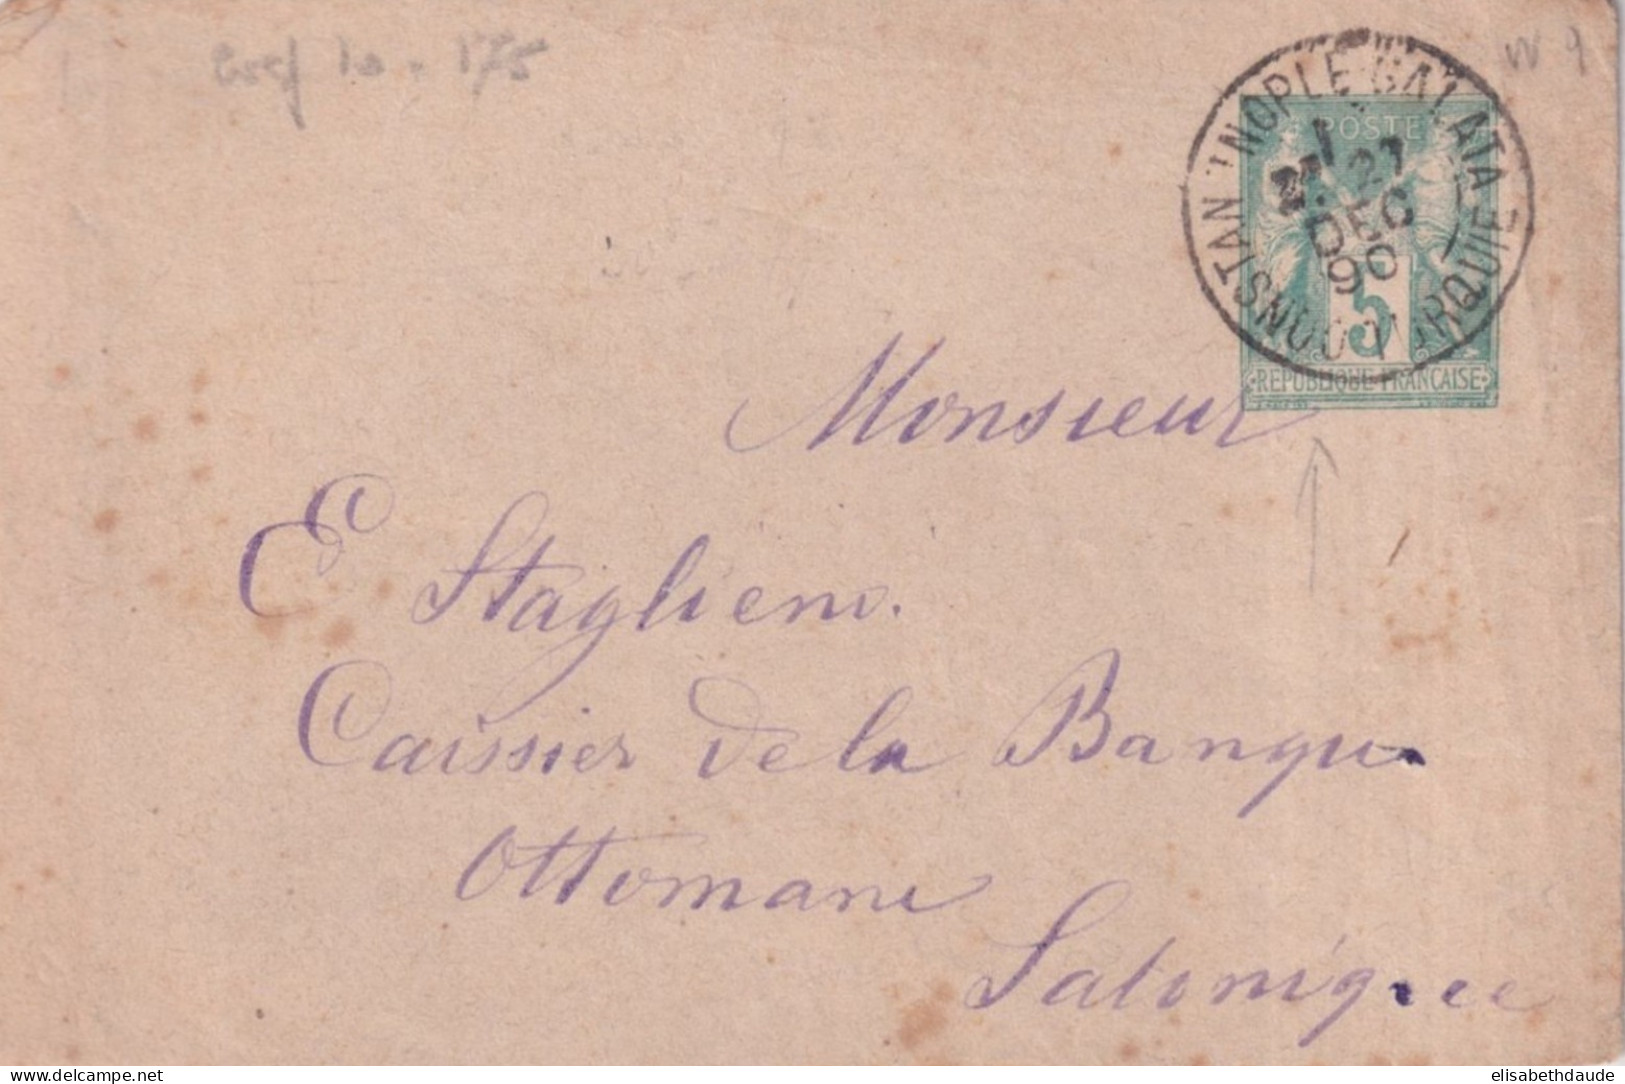 Coef 10 = 175
W 9
CONSTANTINOPLE GALATA
TURQUIE
POSTE
1
27
DEC
90
5
REPUBLIQUE FRANCAISE
Monsieur
E Staglieno.
Caissier de la Banque
Ottomane
Salonique
elisabethdaude